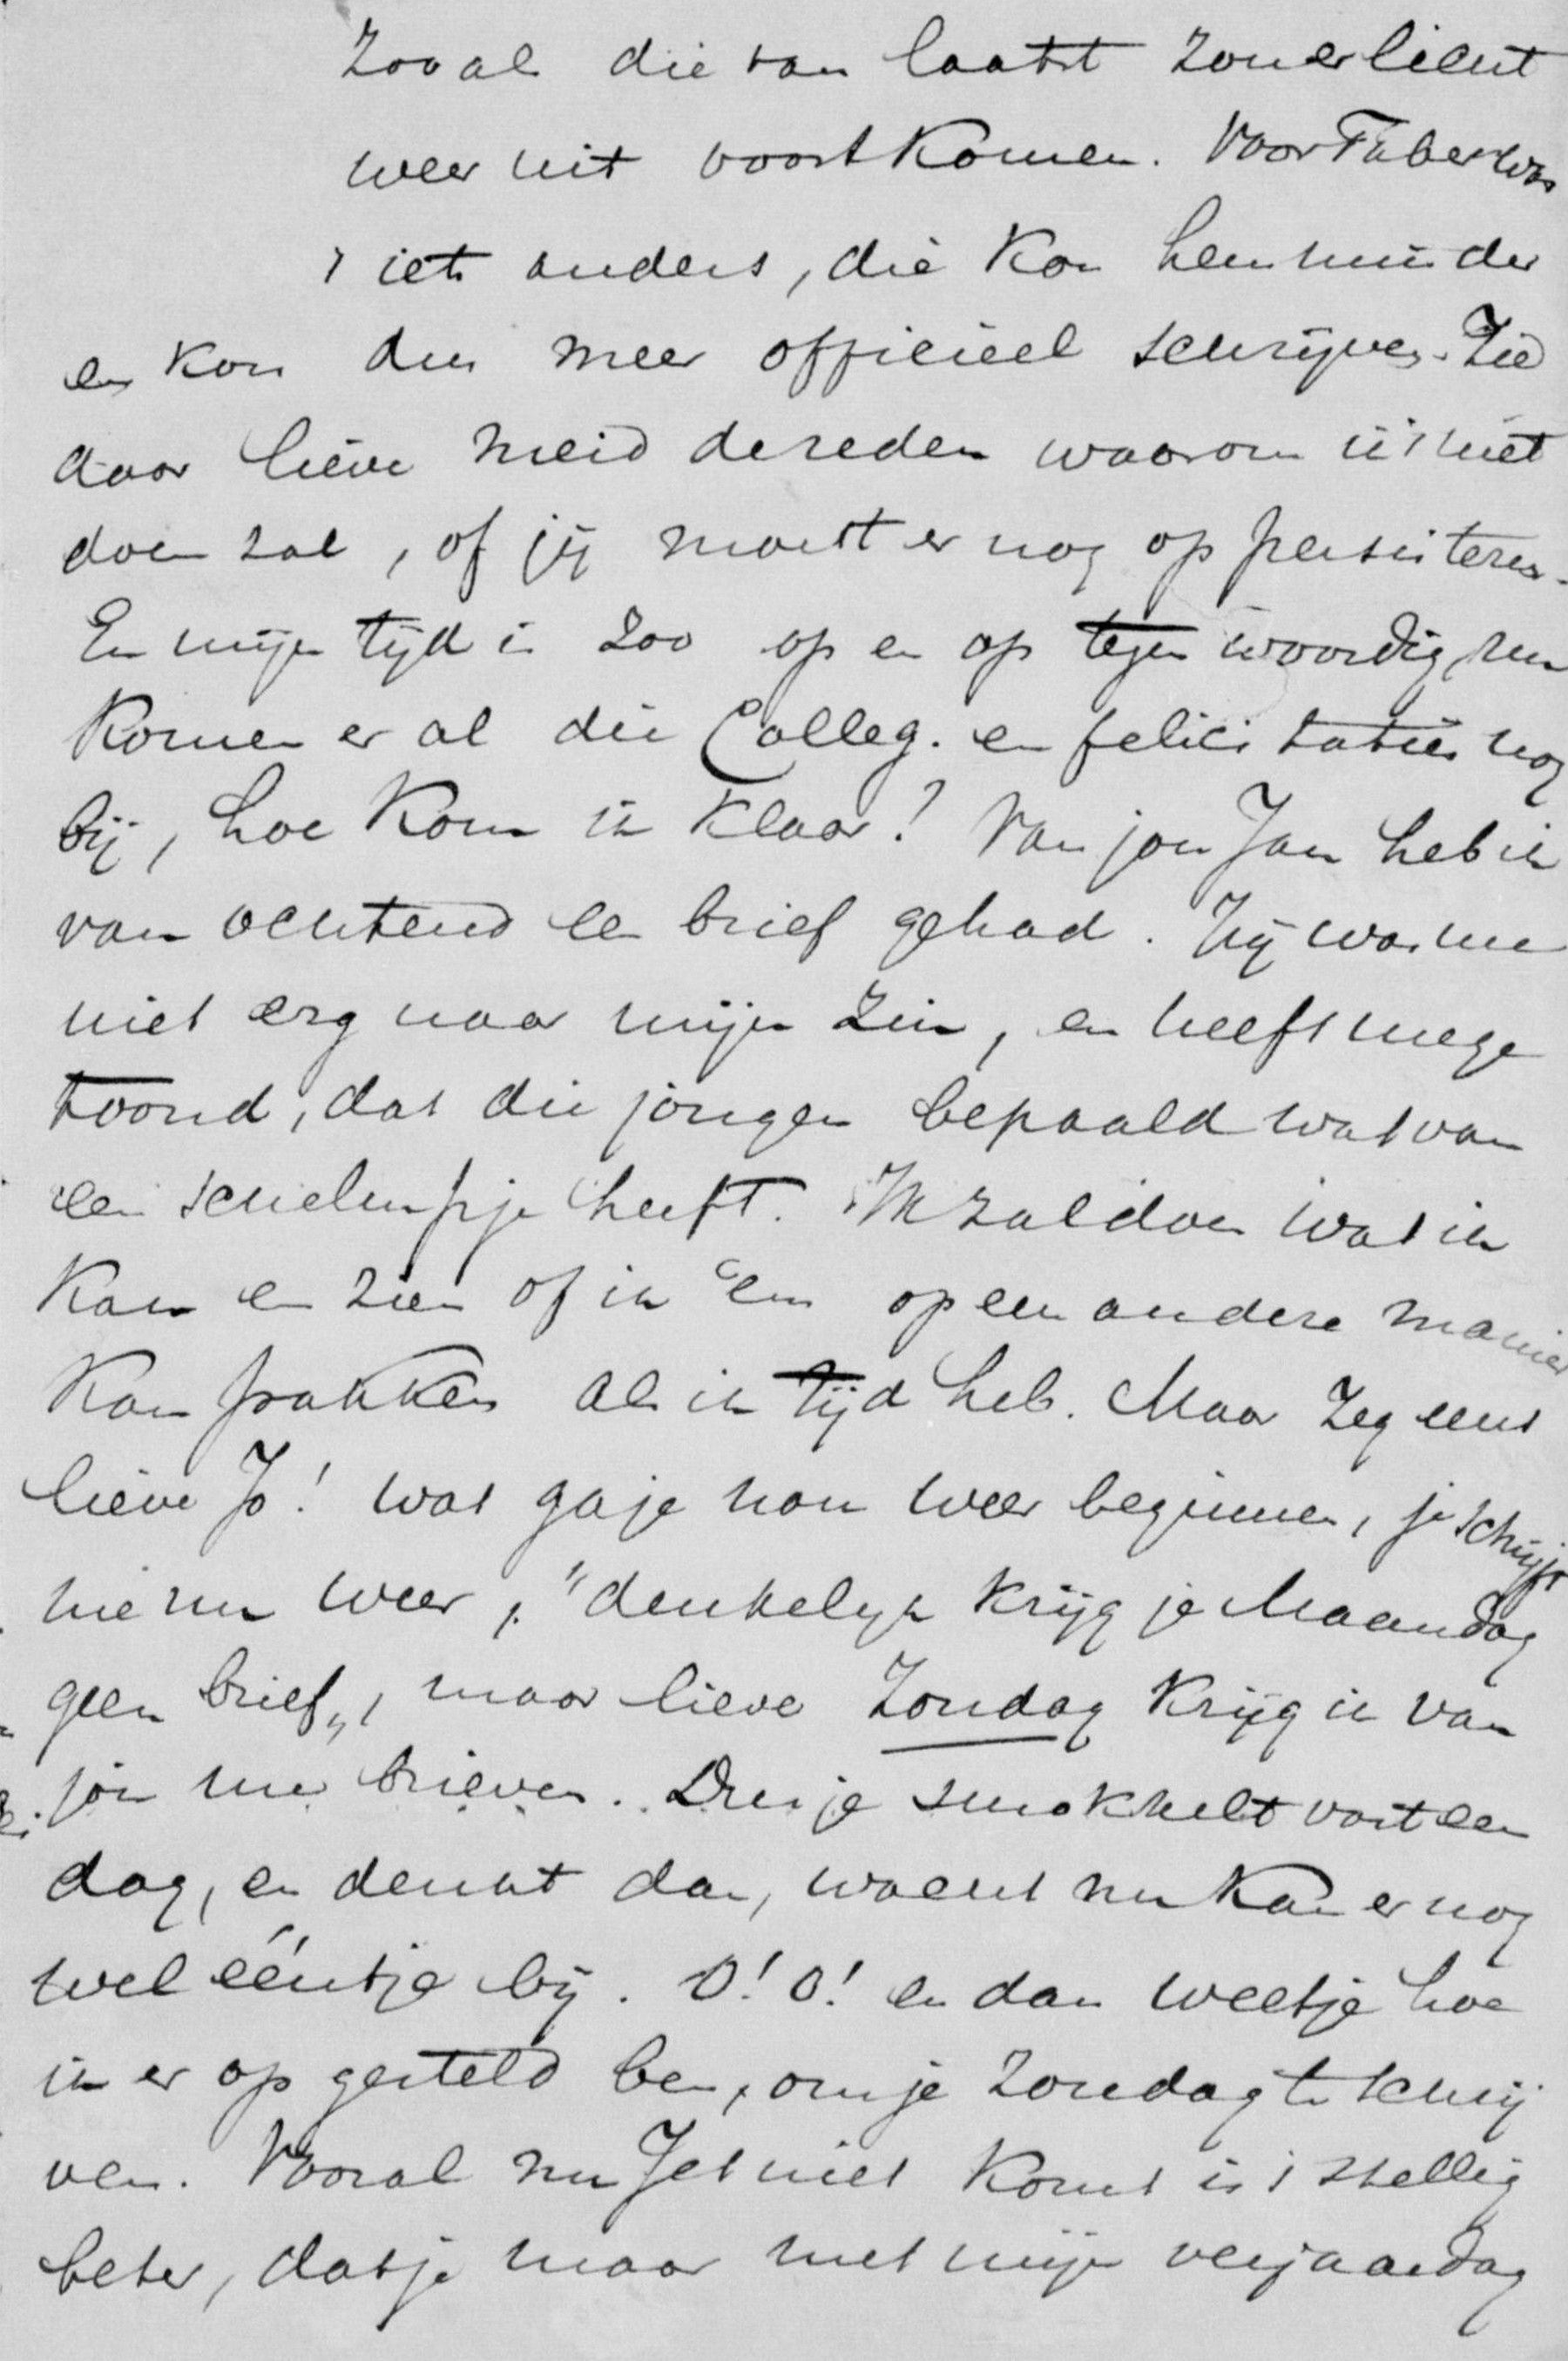 Zooals die van laatst zou er licht
weer uit voortkomen. Voor Faber was
't iets anders, die kon hem minder
en kon dus meer officieel schrijven. Zie
daar lieve meid de reden waarom ik 't niet
doen zal, of jij moest er nog op persisteren.
En mijn tijd is zoo op en op tegenwoordig, nu
komen er al die Colleg. en felicitaties nog
bij, hoe kom ik klaar! Van jou Jan heb ik
van ochtend een brief gehad. Hij was me
niet erg naar mijn zin, en heeft me ge
toond, dat die jongen bepaald wat van
een schelmpje heeft. Ik zal doen wat ik
kan en zien of ik em op een andere manier
kan pakken als ik tijd heb. Maar zeg eens
lieve Jo! wat ga je nou weer beginnen, je schrijft
me nu weer, "denkelijk krijg je Maandag
geen brief", maar lieve Zondag krijg ik van
jou me brieven. Dus je smokkelt vast een
dag, en denkt dan, wacht nu kan er nog
wel ééntje bij. O! O! en dan weet je hoe
ik er op gesteld ben, om je Zondag te schrij
ven. Vooral nu Jet niet komt is 't stellig
beter, dat je maar met mijn verjaardag